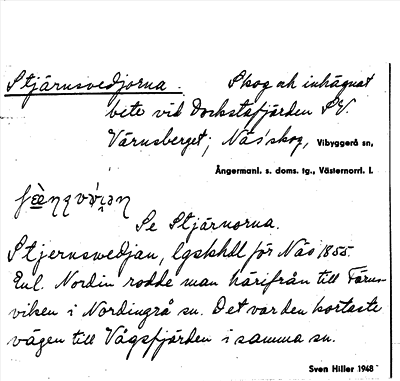 Stjärnsvedjorna. Skog och inhägnat
bete vid Dockstafjärden S.V.
Värnsberget; Näs' skog, Vibyggerå sn,
Ångermanl. s. doms. tg., Västernorrl. l.
Se Stjärnorna.
Stjernswedjan, lgskhdl för Näs 1855.
Enl. Nordin rodde man härifrån till Färns-
viken i Nordingrå sn. Det var den kortaste
vägen till Vågsfjärden i samma sn.
Sven Hiller 1948